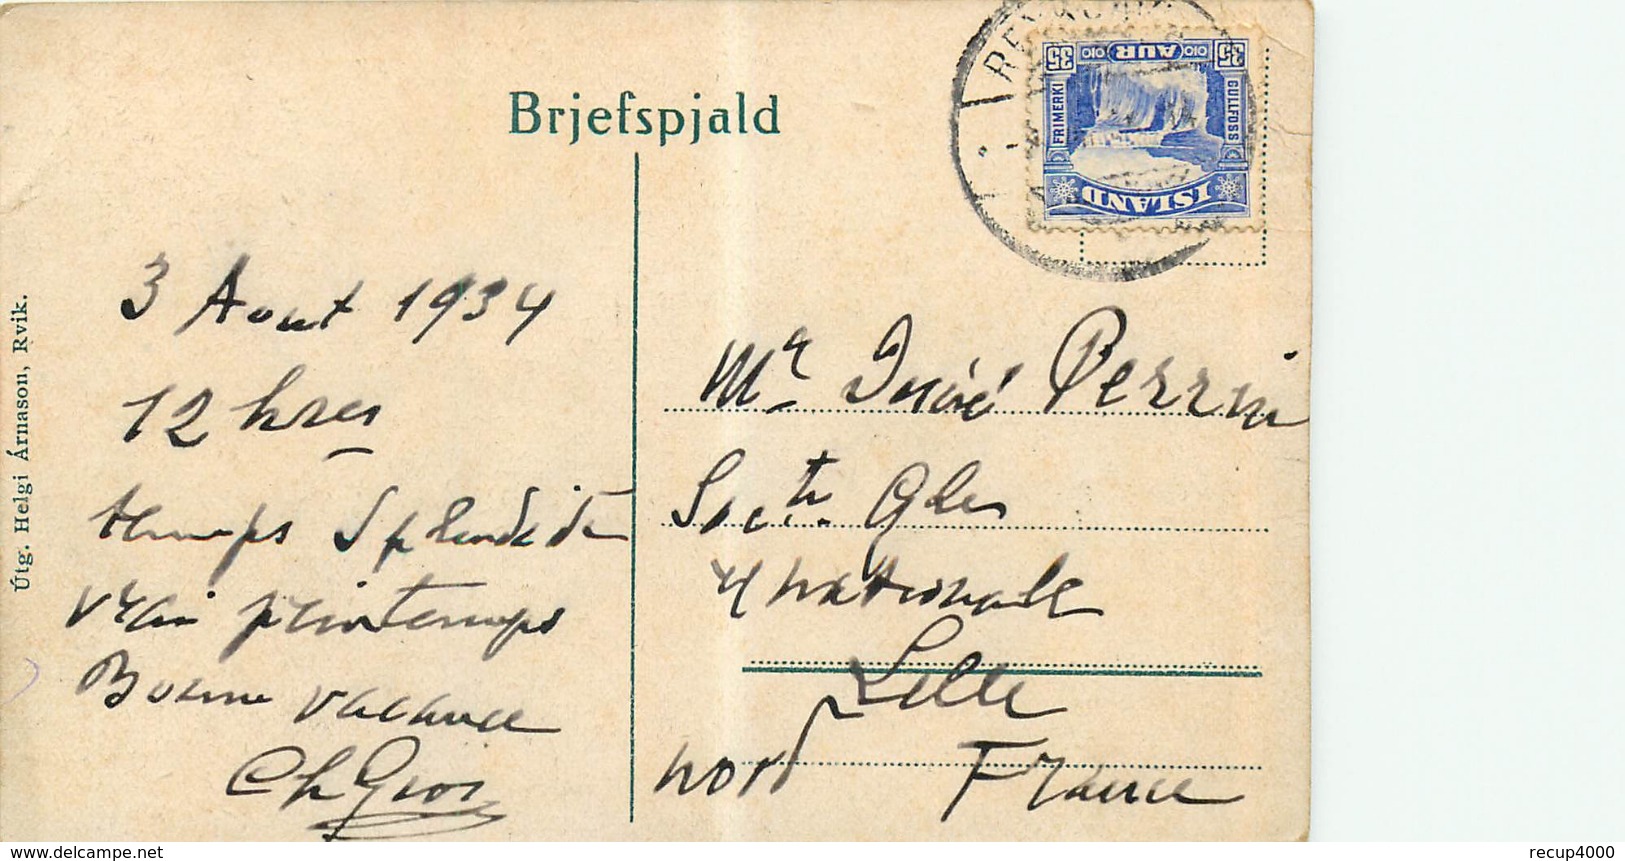 Brjefspjald
REYKJAVIK
35 AUR 35
FRIMERKI
GULLFOSS
ISLAND
Útg. Helgi Árnason, Rvik.
3 Aout 1934
12 hres
temps splendide
vrai printemps
Bonne vacance
Ch Gros
Mr Perrin
Socte Gle
nationale
Lille
nord France
www.delcampe.net
recup4000